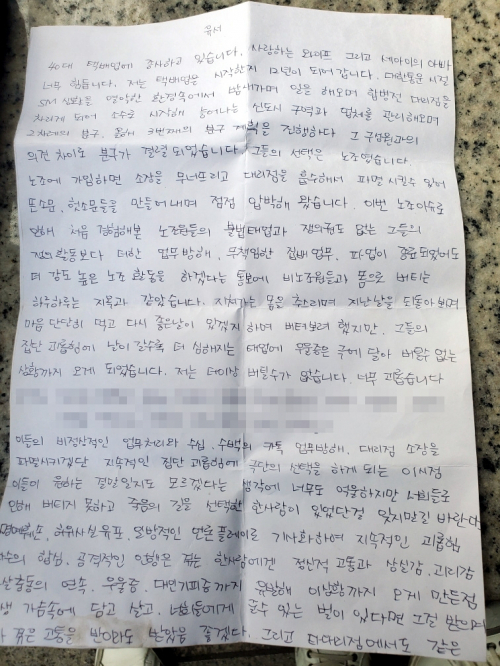 유서
40대 택배업에 종사하고 있습니다. 사랑하는 와이프 그리고 세아이의 아빠
너무 힘듭니다. 저는 택배업을 시작한지 12년이 되어 갑니다. 대한통운 시절
열악한 환경속에서 밤새가며 일을 해오며 합병전 대리점을
차리게 되어 소수로 시작해 늘어나는 신도시 구역과 업체를 관리해오며
2차례의 분구, 올해 3번째의 분구 계획을 진행하다 그 구성원과의
의견 차이로 분구가 결렬 되었습니다. 그들의 선택은 노조였습니다.
노조에 가입하면 소장을 무너뜨리고 대리점을 흡수해서 파멸 시킬수 있다
뜬소문, 헛소문들을 만들어내며 점점 압박해 왔습니다. 이번 노조 이유로
인해 처음 경험해본 노조원들의 불법태업과 쟁의권도 없는 그들의
쟁의 활동보다 더한 업무방해, 무책임한 집배업무, 파업이 종료되었어도
더 강도 높은 노조 활동을 하겠다는 통보에 비노조원들과 몸으로 버티는
하루하루는 지옥과 같았습니다. 지쳐가는 몸을 추스리며 지난날을 되돌아보며
마음 단단히 먹고 다시 좋은날이 있겠지 하며 버텨보려 했지만, 그들의
집단 괴롭힘에 날이 갈수록 더 심해지는 태업에 우울증은 극에 달아 버틸수 없는
상황까지 오게 되었습니다. 저는 더이상 버틸수가 없습니다. 너무 괴롭습니다
이들의 비정상적인 업무처리와 수십, 수백의 카톡 업무방해, 대리점 소장을
파멸시키겠단 지속적인 집단 괴롭힘에 극단의 선택을 하게 되는 이시점
이들이 원하는 결말일지도 모르겠다는 생각에 너무도 억울하지만 너희들로
인해 버티지 못하고 죽음의 길을 선택한 한사람이 있었단걸 잊지말길 바란다
명예훼손, 허위사실유포, 일방적인 언론 플레이로 기사화하여 지속적인 괴롭힘
다수의 합심, 공격적인 언행은 겪는 한사람에겐 정신적 고통과 상실감, 괴리감
살충동의 연속, 우울증, 대인기피증까지 유발해 이상황까지 오게 만든점
생 가슴속에 담고 살고, 너희들에게 줄수 있는 벌이 있다면 그걸 받으며
겪은 고통을 받아라도 봤으면 좋겠다. 그리고 타대리점에서도 같은